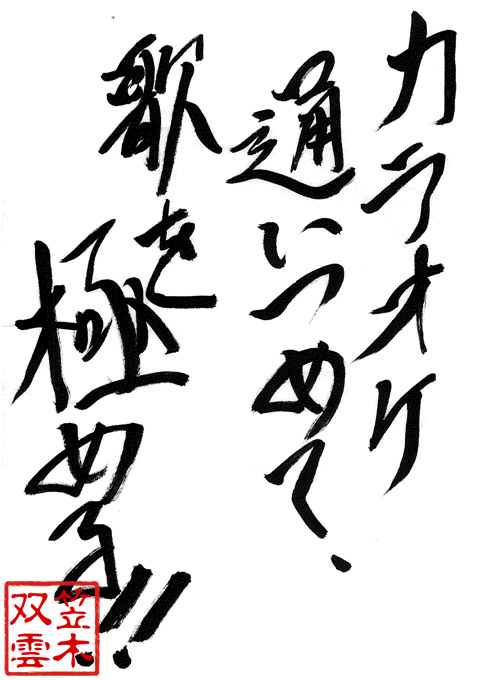 カラオケ
通いつめて、
歌を
極める!!
笠木
双雲